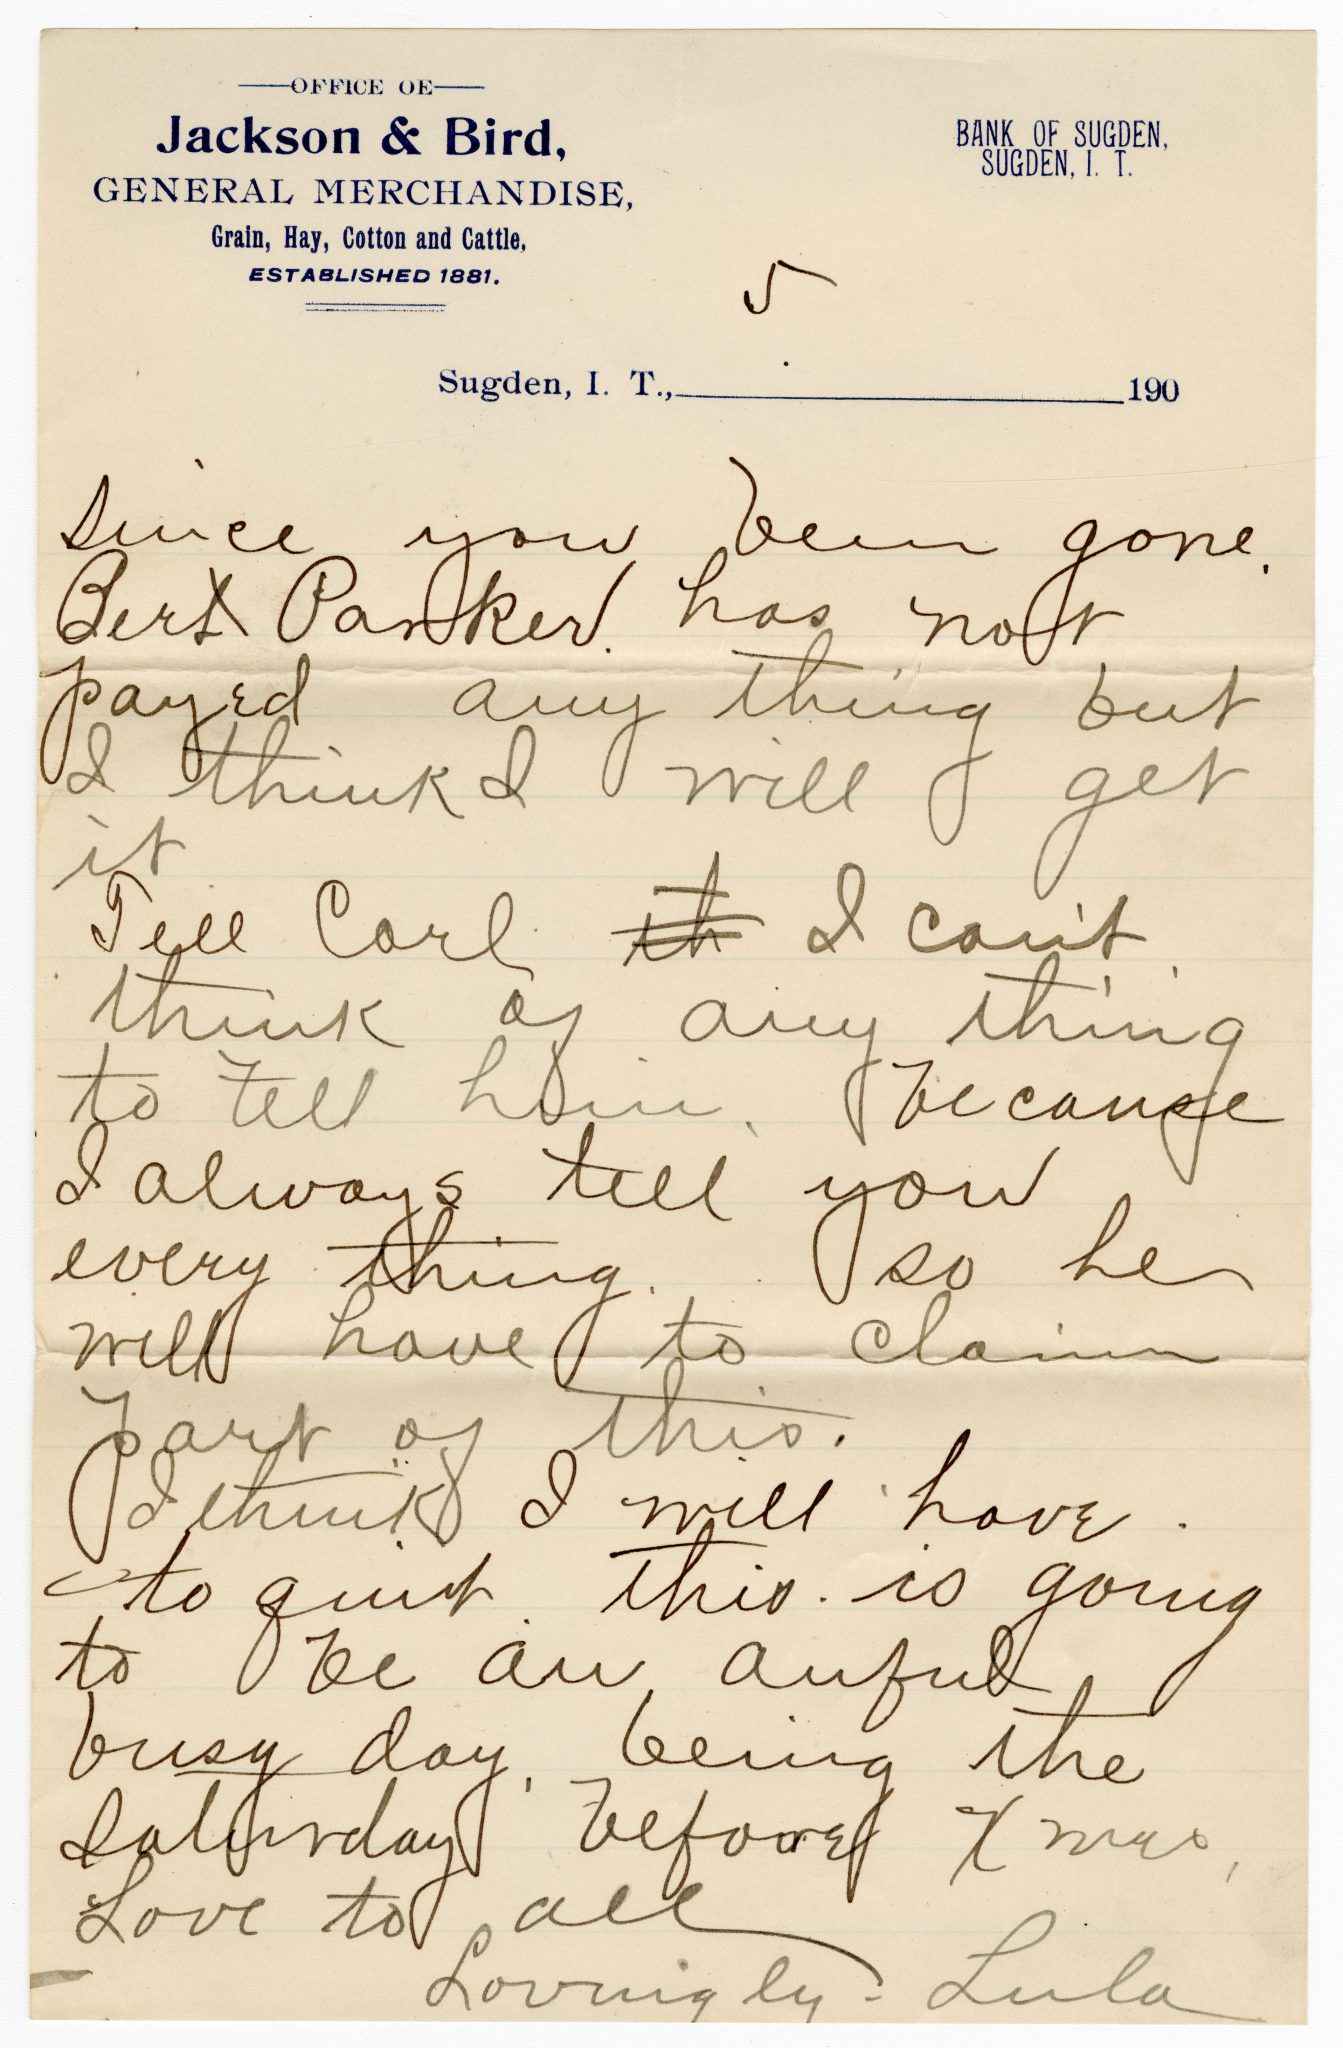 OFFICE OF
Jackson & Bird,
GENERAL MERCHANDISE,
Grain, Hay, Cotton and Cattle,
ESTABLISHED 1881.
BANK OF SUGDEN,
SUGDEN, I. T.
5
Sugden, I. T., 190
since you been gone.
Bert Parker. has not
payed any thing but
I think I will get
it
Tell Carl th I can't
think of any thing
to tell him. because
I always tell you
every thing. so he
will have to claim
part of this.
I think I will have
to quit. this. is going
to be an awful
busy day, being the
Saturday before Xmas,
Love to all
Lovingly - Lula